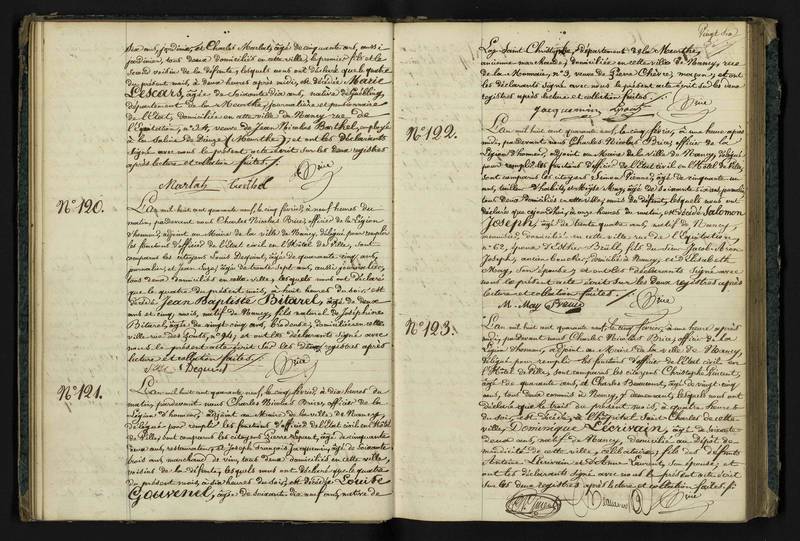 dix ans, jardinier, et Charles Marlat, âgé de cinquante ans, aussi
jardinier, tous deux domiciliés en cette ville, le premier fils et le
second voisin de la défunte, lesquels nous ont déclaré que le quatre
du présent mois, à deux heures après midi, est décédée Marie
Lescars, âgée de soixante dix ans, native de
département de la Meurthe, journalière et pensionnaire
de l'Etat, domiciliée en cette ville de Nancy rue de
l'Equitation, n° 24, veuve de Jean Nicolas Barthel, employé
à la Saline de Dieuze (Meurthe), et ont les déclarants
signé avec nous le présent acte écrit sur les deux registres
après lecture et collation faites.
Brice
Marlat
N° 120.
L'an mil huit cent quarante neuf, le cinq février, à neuf heures du
matin, pardevant nous Charles Nicolas Brice, officier de la Légion
d'honneur, adjoint au Maire de la ville de Nancy, délégué pour remplir
les fonctions d'officier de l'Etat civil en l'Hôtel de Ville, sont
comparus les citoyens Louis Dequint, âgé de quarante cinq ans,
journalier, et Jean Suzé, âgé de trente sept ans, aussi journalier,
tous deux domiciliés en cette ville, lesquels nous ont déclaré
que le quatre du présent mois, à huit heures du soir, est
décédé Jean Baptiste Bitarel, âgé de deux
ans et cinq mois, natif de Nancy, fils naturel de Joséphine
Bitarel, âgée de vingt cinq ans, brodeuse, domiciliée en cette
ville rue des n° 24, et ont les déclarants signé avec
nous le présent acte écrit sur les deux registres après
lecture et collation faites.
Dequint Brice
N° 121.
L'an mil huit cent quarante neuf, le cinq février, à dix heures du
matin, pardevant nous Charles Nicolas Brice, officier de la
Légion d'honneur, adjoint au Maire de la ville de Nancy,
délégué pour remplir les fonctions d'officier de l'Etat civil en l'Hôtel
de Ville, sont comparus les citoyens Pierre âgé de cinquante
deux ans, restaurateur, et Joseph François Jacquemin, âgé de soixante
huit ans, marchand de vin, tous deux domiciliés en cette ville,
voisins de la défunte, lesquels nous ont déclaré que le quatre
du présent mois, à dix heures du soir, est décédée Louise
Gouvenel, âgée de soixante dix neuf ans, native de
Vingt
Loy Saint Christophe, département de la Meurthe,
ancienne marchande, domiciliée en cette ville de Nancy, rue
de la Monnaie, n° 3, veuve de Pierre Chèvre, maçon, et ont
les déclarants signé avec nous le présent acte écrit sur les deux
registres après lecture et collation faites.
Jacquemin Brice
N° 122.
L'an mil huit cent quarante neuf, le cinq février, à une heure après
midi, pardevant nous Charles Nicolas Brice, officier de la
Légion d'honneur, adjoint au Maire de la Ville de Nancy, délégué
pour remplir les fonctions d'officier de l'Etat civil en l'Hôtel de Ville,
sont comparus les citoyens Simon Pierre, âgé de cinquante
ans, tailleur d'habits, et Moyse May, âgé de soixante six ans,
tous deux domiciliés en cette ville, amis du défunt, lesquels nous ont
déclaré que aujourd'hui, à onze heures du matin, est décédé Salomon
Joseph, âgé de trente quatre ans, natif de Nancy,
domicilié en cette ville rue de l'Equitation
n° 62, époux d'Esther fils du Sieur Jacob Aron
Joseph, ancien boucher, domicilié à Nancy, et d'Elisabeth
May, son épouse, et ont les déclarants signé avec
nous le présent acte écrit sur les deux registres après
lecture et collation faites.
M. May Brice
N° 123.
L'an mil huit cent quarante neuf, le cinq février, à une heure après
midi, pardevant nous Charles Nicolas Brice, officier de la
Légion d'honneur, adjoint au Maire de la ville de Nancy,
délégué pour remplir les fonctions d'officier de l'Etat civil en
l'Hôtel de Ville, sont comparus les citoyens Christophe Vincent,
âgé de quarante ans, et Charles Beaumont, âgé de vingt cinq
ans, tous deux commis à Nancy, y demeurant, lesquels nous ont
déclaré que le trois du présent mois, à quatre heures du
soir, est décédé à l'hôpital Saint Charles de cette
ville, Dominique Lécrivain, âgé de soixante
deux ans, natif de Nancy, domicilié au Dépôt de
mendicité de cette ville, célibataire, fils des défunts
Antoine Lécrivain et Salomé Laurent, son épouse, et
ont les déclarants signé avec nous le présent acte écrit
sur les deux registres après lecture et collation faites.
Vincent Beaumont Brice